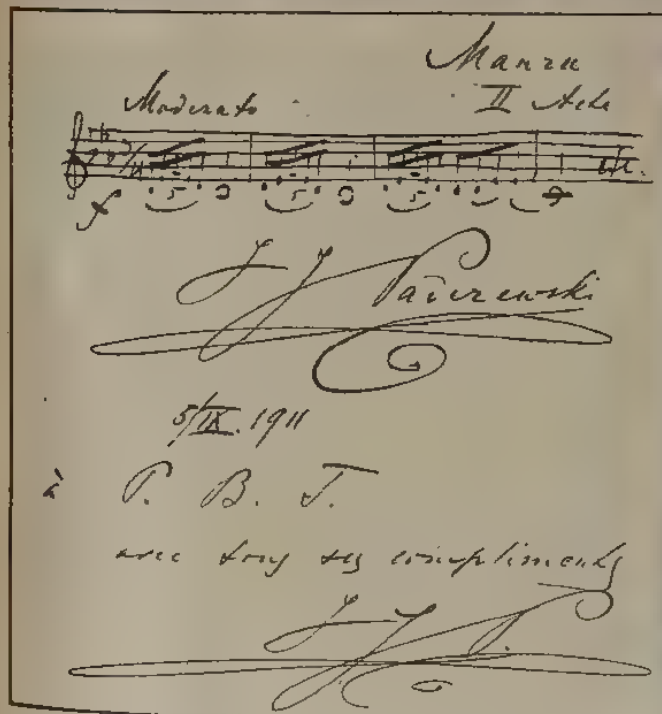 Manru
II Acte
Moderato
f
5 5 5
etc.
I J Paderewski
5/IX. 1911
à P. B. T.
avec tous ses compliments
I J P.